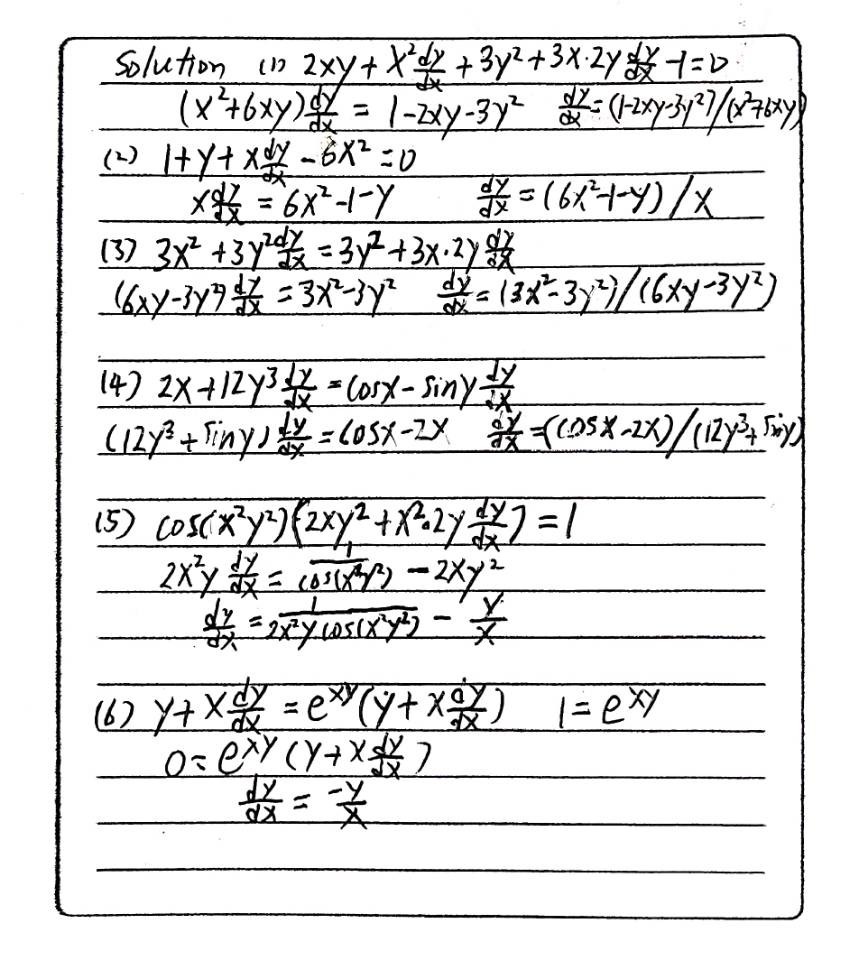 Solution (1) 2xy + x² dy/dx + 3y² + 3x·2y dy/dx - 1 = 0
(x²+6xy) dy/dx = 1-2xy-3y² dy/dx = (1-2xy-3y²)/(x²+6xy)
(2) 1 + y + x dy/dx - 6x² = 0
x dy/dx = 6x²-1-y dy/dx = (6x²-1-y)/x
(3) 3x² + 3y² dy/dx = 3y² + 3x·2y dy/dx
(6xy-3y²) dy/dx = 3x²-3y² dy/dx = (3x²-3y²)/(6xy-3y²)
(4) 2x + 12y³ dy/dx = cosx - siny dy/dx
(12y³ + siny) dy/dx = cosx-2x dy/dx = (cosx-2x)/(12y³+siny)
(5) cos(x²y²)(2xy² + x²·2y dy/dx) = 1
2x²y dy/dx = 1/cos(x²y²) - 2xy²
dy/dx = 1/2x²y cos(x²y²) - y/x
(6) y + x dy/dx = e^xy (y + x dy/dx) 1 = e^xy
0 = e^xy (y + x dy/dx)
dy/dx = -y/x